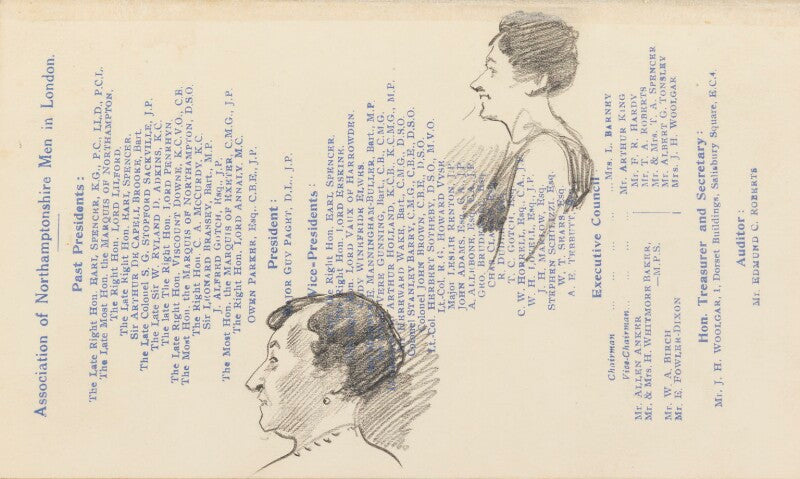 Association of Northamptonshire Men in London.
Past Presidents:
The Late Right Hon. EARL SPENCER, K.G., P.C., LL.D., P.C.L.
The Late Most Hon. the MARQUIS OF NORTHAMPTON,
The Right Hon. LORD LILFORD.
The Late Right Hon. EARL SPENCER.
Sir ARTHUR DE CAPELL BROOKE, Bart.
The Late Colonel S. G. STOPFORD SACKVILLE, J.P.
The Late Sir RYLAND ADKINS, K.C.
The Late Right Hon. LORD PENRHYN.
The Late Right Hon. VISCOUNT DOWNE, K.C.V.O., C.B.
The Most Hon. the MARQUIS OF NORTHAMPTON, D.S.O.
The Right Hon. C. A. McCURDY, K.C.
Sir LEONARD BRASSEY, Bart., M.P.
J. ALFRED GOTCH, Esq., J.P.
The Most Hon. the MARQUIS OF EXETER, C.M.G., J.P.
The Right Hon. LORD ANNALY, M.C.
OWEN PARKER, Esq., C.B.E., J.P.
President:
JOR GUY PAGET, D.L., J.P.
Vice-Presidents:
Right Hon. EARL SPENCER.
Right Hon. LORD ERSKINE.
Hon. LORD VAUX OF HARROWDEN.
DY WINEFRIDE ELWES.
E. MANNINGHAM-BULLER, Bart., M.P.
Bart., C.B., C.M.G.
ARTHUR HOLLAND, K.C.B., K.C.M.G., M.P.
HEREWARD WAKE, Bart., C.M.G., D.S.O.
Colonel STANLEY BARRY, C.M.G., C.B.E., D.S.O.
Colonel JOHN BROWN, C.B.E., D.S.O.
Lt. Col. HERBERT SOTHEBY, D.S.O., M.V.O.
Lt.-Col. R. HOWARD VYSE.
Major LESLIE RENTON, J.P.
JOHN ADAMS, Esq., J.P.
A. ALLEBONE, Esq.
GEO.
CHAS.
T. C. GOTCH, Esq.
C. W. HORRELL, Esq.
W. H.
J. H. MARLOW, Esq.
STEPHEN SCHILIZZI, Esq.
W. T. SEARS, Esq.
A. E. TEBBUTT
Executive Council
Chairman ... ... ... ... Mrs. L. BARNEY
Vice-Chairman ... ... ... Mr. ARTHUR KING
Mr. ALLEN ANKER Mr. F. R. HARDY
Mr. & Mrs. H. WHITMORE BAKER, M.P.S. ROBERTS
Mr. & Mrs. T. A. SPENCER
Mr. W. A. BIRCH Mr. ALBERT G. TONSLEY
Mr. E. FOWLER-DIXON Mrs. J. H. WOOLGAR
Hon. Treasurer and Secretary:
Mr. J. H. WOOLGAR, 1, Dorset Buildings, Salisbury Square, E.C.4.
Auditor:
Mr. EDMUND C. ROBERTS